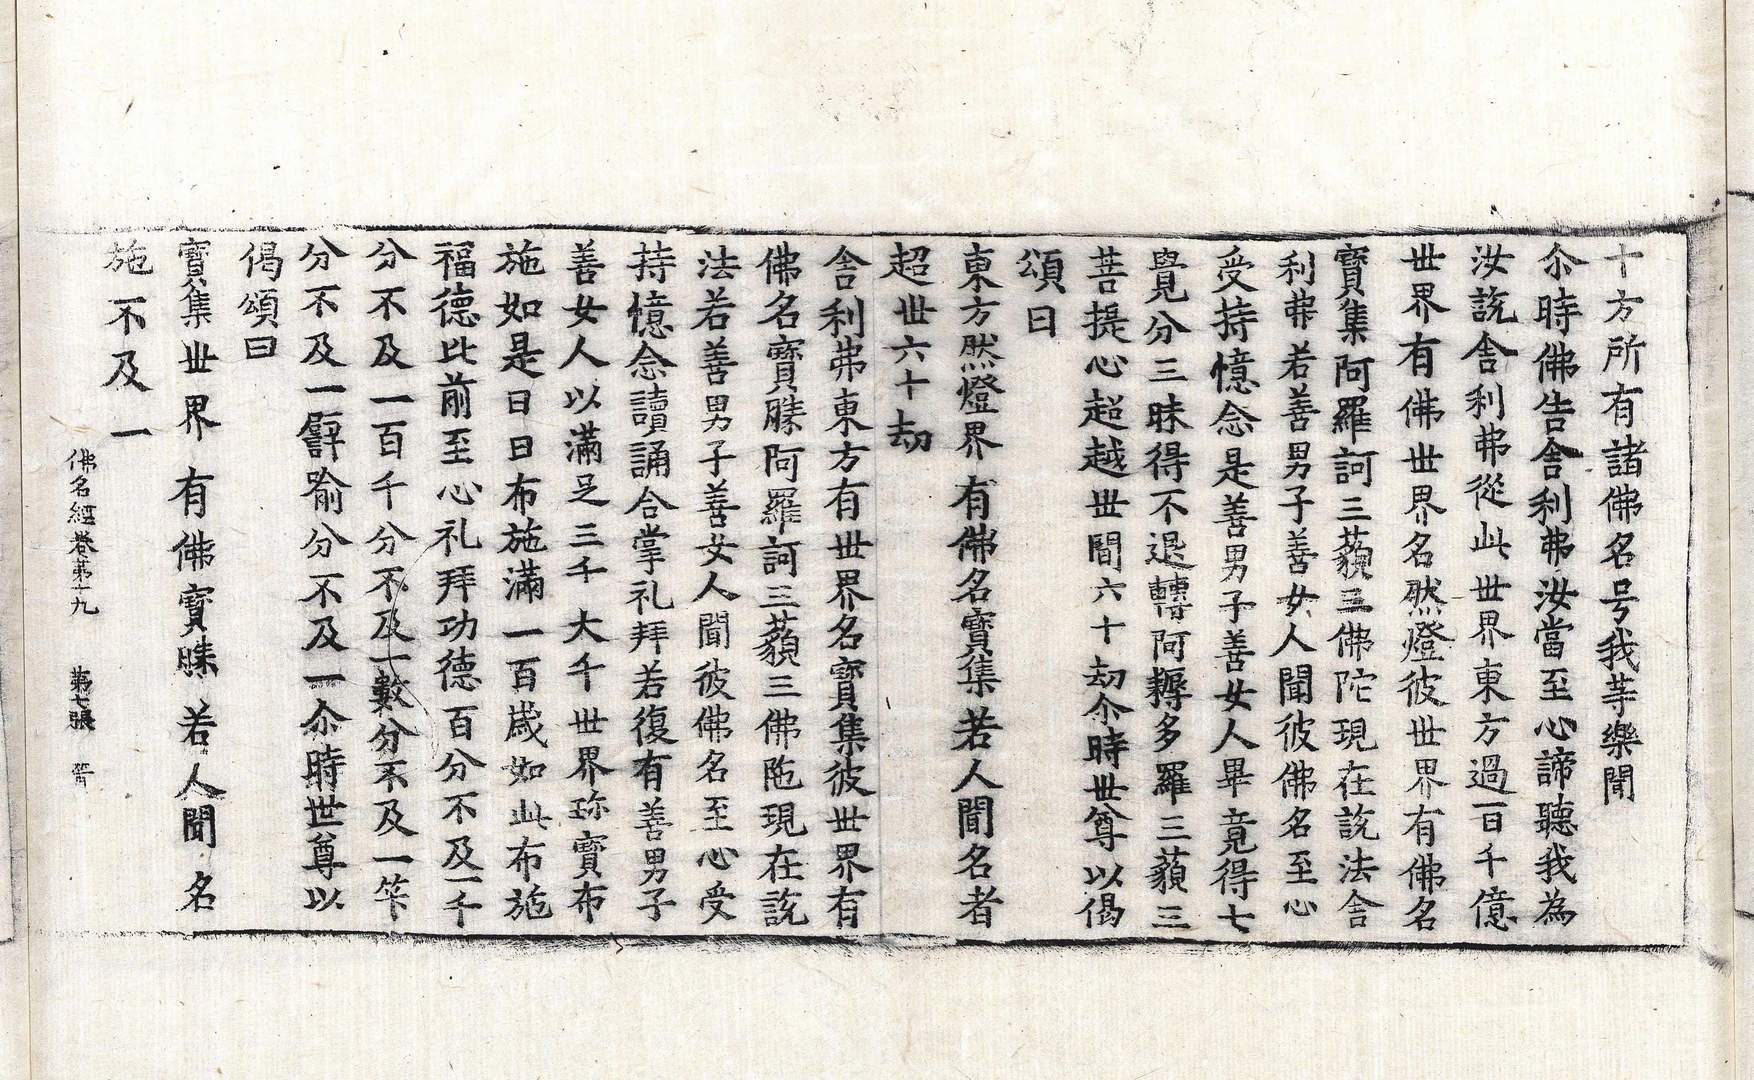 十方所有諸佛名号我䓁樂聞
尒時佛告舎利弗汝當至心諦聽我為
汝說舎利弗從此世界東方過百千億
世界有佛世界名然燈彼世界有佛名
寶集阿羅訶三藐三佛陀現在說法舎
利弗若善男子善女人聞彼佛名至心
受持憶念是善男子善女人畢竟得七
覺分三昧得不退轉阿耨多羅三藐三
菩提心超越世間六十劫尒時世尊以偈
頌曰
東方然燈界有佛名寶集若人聞名者
超世六十劫
舎利弗東方有世界名寶集彼世界有
佛名寶勝阿羅訶三藐三佛陁現在說
法若善男子善女人聞彼佛名至心受
持憶念讀誦合掌礼拜若復有善男子
善女人以滿足三千大千世界珎寶布
施如是日日布施滿一百歲如此布施
福德比前至心礼拜功德百分不及一千
分不及一百千分不及一數分不及一筭
分不及一譬喻分不及一尒時世尊以
偈頌曰
寶集世界有佛寶勝若人聞名
施不及一
佛名經卷第十九 第七張